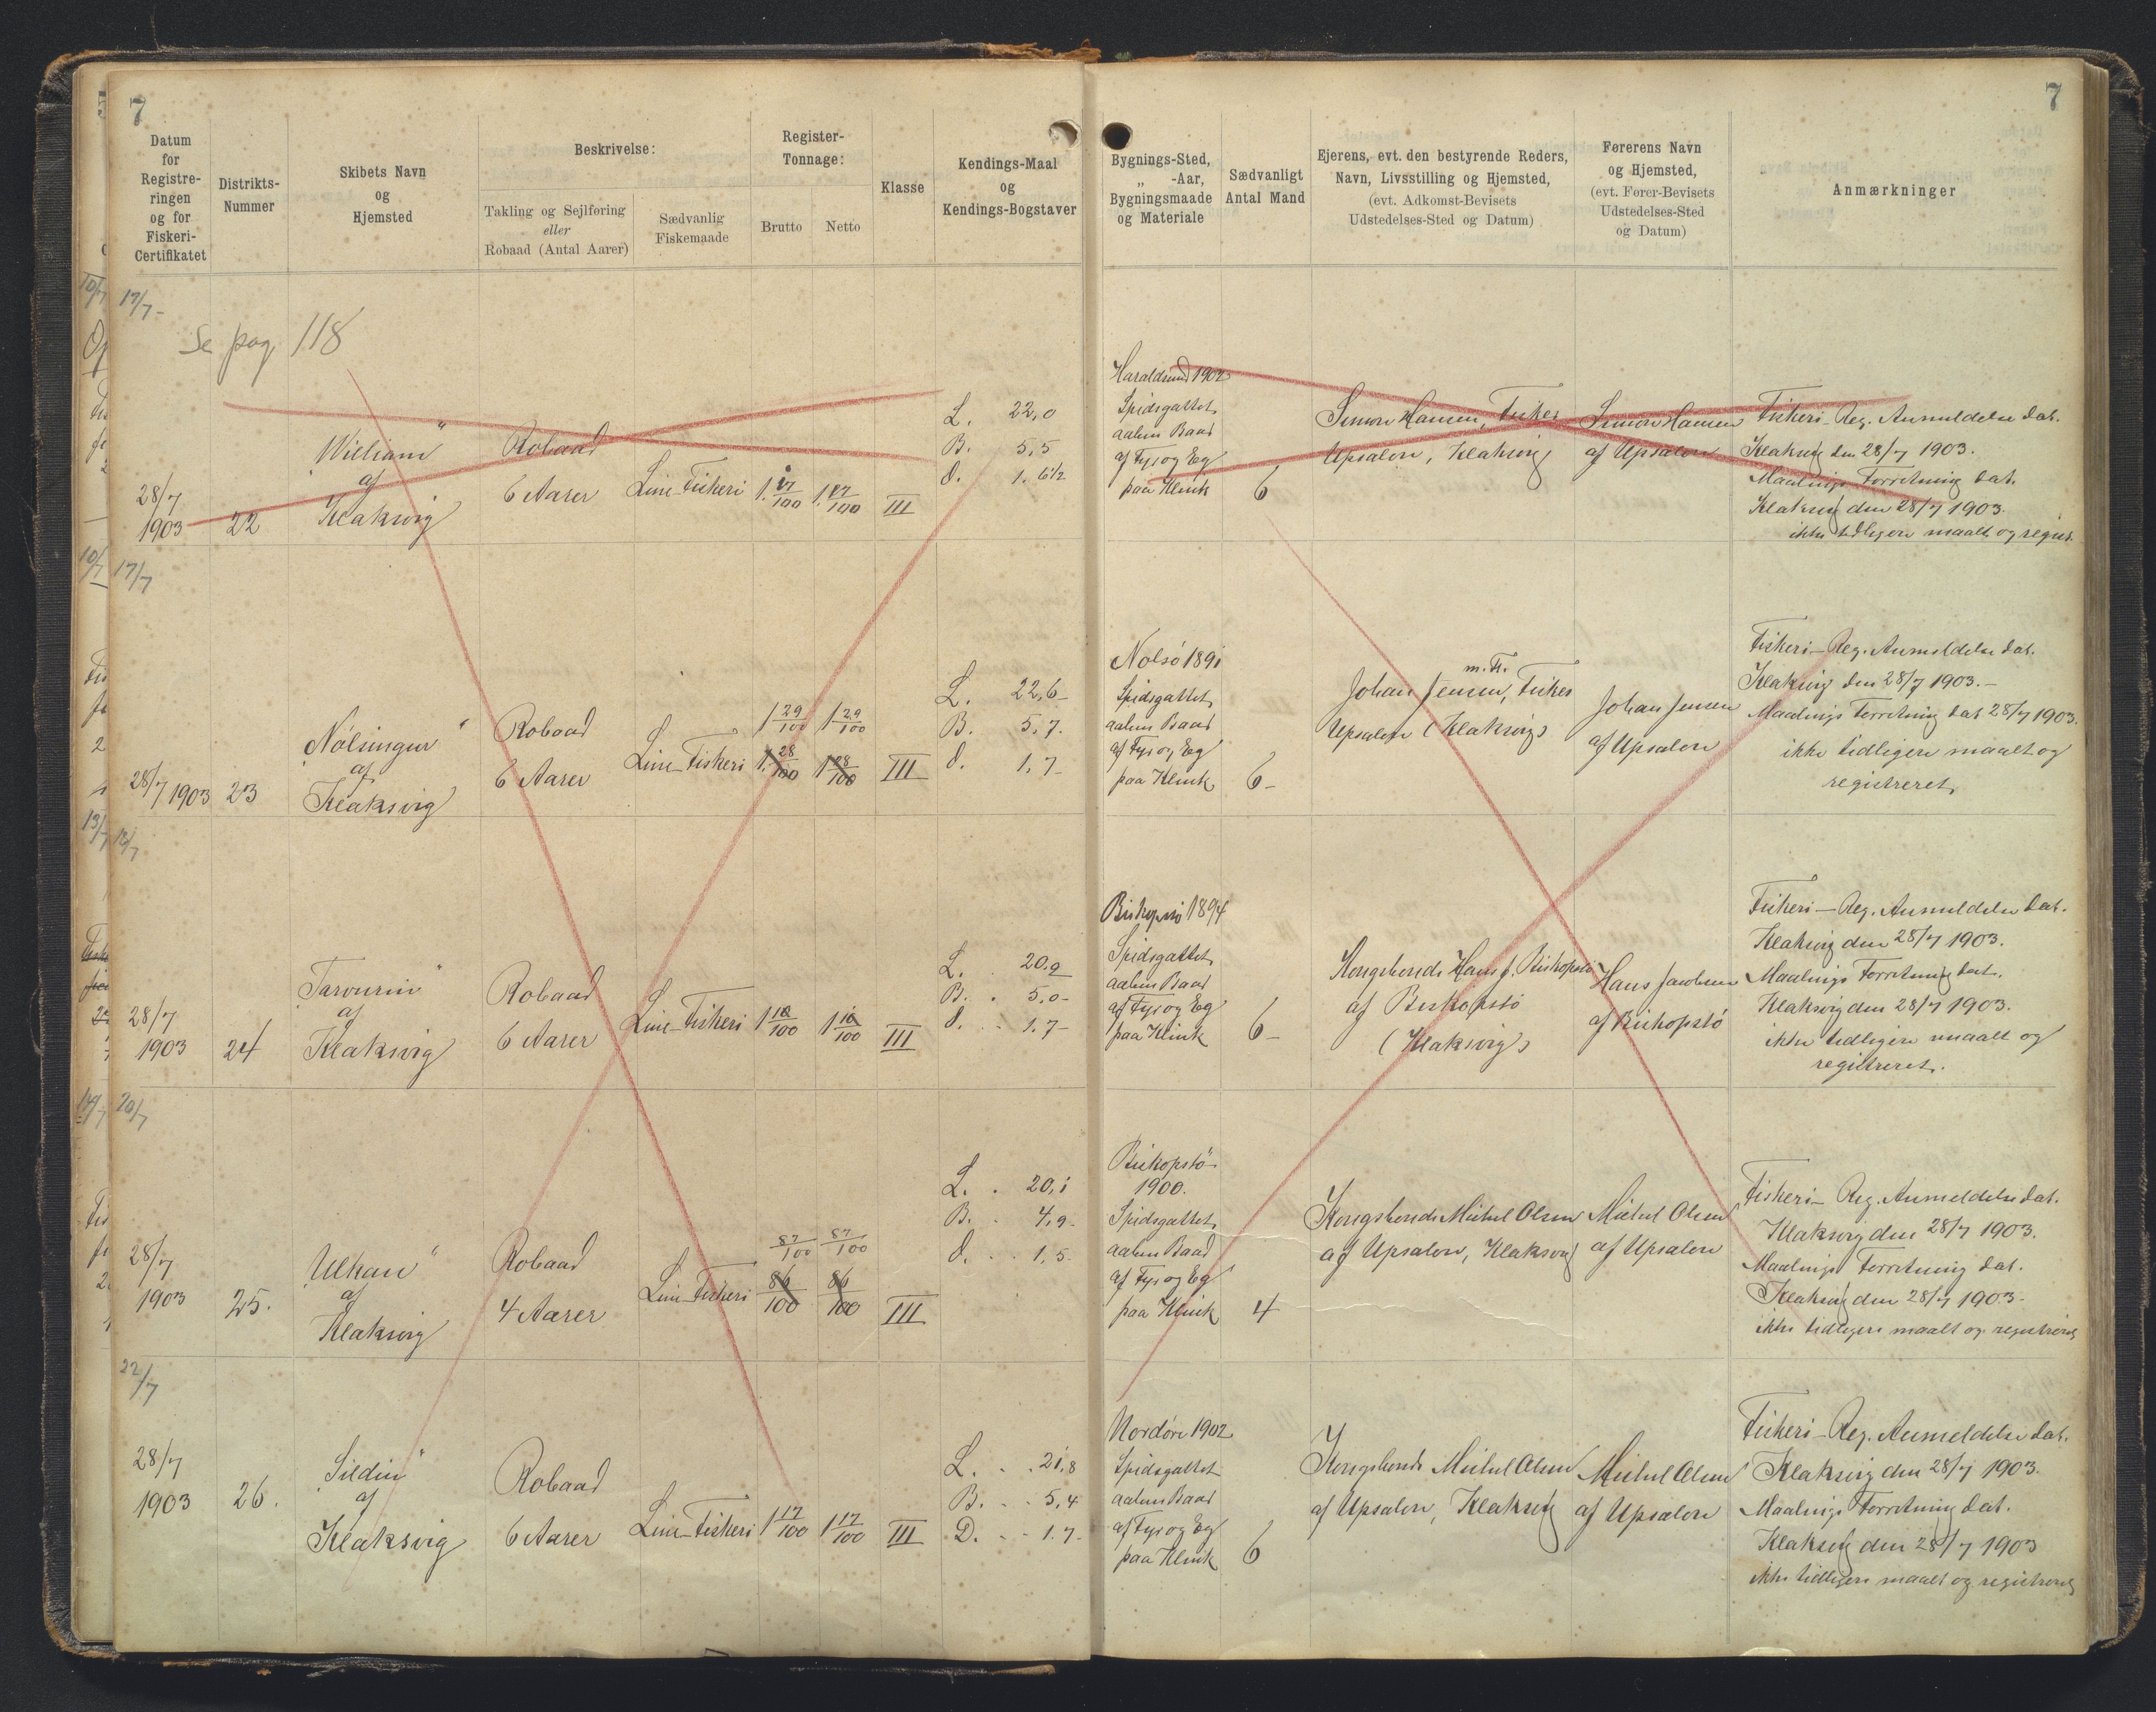 7
Datum
for
Registre-
ringen
og for
Fiskeri-
Certifikatet
Distrikts-
Nummer
Skibets Navn
og
Hjemsted
Beskrivelse:
Takling og Sejlføring
eller
Robaad (Antal Aarer)
Sædvanlig
Fiskemaade
Register-
Tonnage:
Brutto
Netto
Klasse
Kendings-Maal
og
Kendings-Bogstaver
Bygnings-Sted,
„ -Aar,
Bygningsmaade
og Materiale
Sædvanligt
Antal Mand
Ejerens, evt. den bestyrende Reders,
Navn, Livsstilling og Hjemsted,
(evt. Adkomst-Bevisets
Udstedelses-Sted og Datum)
Førerens Navn
og Hjemsted,
(evt. Fører-Bevisets
Udstedelses-Sted
og Datum)
Anmærkninger
7
17/7-
Se pag 118
28/7
1903
22
„William“
af
Klaksvig
Robaad
6 Aarer
Line-Fiskeri
1 17/100
1 17/100
III
L. 22,0
B. 5,5
d. 1,6½
Haraldsund 1902
Spidsgattet
aaben Baad
af Fyr og Eg
paa Klink
6
Simon Hansen, Fisker
Upsalon, Klaksvig
Simon Hansen
af Upsalon
Fiskeri-Reg. Anmeldelse dat.
Klaksvig den 28/7 1903.
Maalings Forretning dat.
Klaksvig den 28/7 1903.
ikke tidligere maalt og regist.
17/7
28/7 1903
23
„Nólsingur“
af
Klaksvig
Robaad
6 Aarer
Line-Fiskeri
1 29/100
1 29/100
1 28/100
1 28/100
III
L. 22,6-
B. 5,7.
d. 1,7-
Nolsö 1891
Spidsgattet
aaben Baad
af Fyr og Eg
paa Klink
6-
m. Fl.
Johan Jensen, Fisker
Upsalon (Klaksvig)
Johan Jensen
af Upsalon
Fiskeri-Reg. Anmeldelse dat.
Klaksvig den 28/7 1903.-
Maalings Forretning dat 28/7 1903.
ikke tidligere maalt og
registreret.
18/7
28/7
1903
24
„Tarvurin“
af
Klaksvig
Robaad
6 Aarer
Line-Fiskeri
1 10/100
1 10/100
III
L. 20.9
B. 5,0-
d. 1,7-
Biskopstö 1894
Spidsgattet
aaben Baad
af Fyr og Eg
paa Klink
6-
Kongsbonde Hans J. Biskopstö
af Biskopstö
(Klaksvig)
Hans Jacobsen
af Biskopstö
Fiskeri-Reg. Anmeldelse dat.
Klaksvig den 28/7 1903.
Maalings Forretning dat.
Klaksvig den 28/7 1903.
ikke tidligere maalt og
registreret.
20/7
28/7
1903
25.
af
Klaksvig
Robaad
4 Aarer
Line-Fiskeri
87/100
87/100
86/100
86/100
III
L. 20,1
B. 4,9-
d. 1,5.
Biskopstö
1900.
Spidsgattet
aaben Baad
af Fyr og Eg
paa Klink
4
Kongsbonde Michel Olsen
af Upsalon, Klaksvig
Michel Olsen
af Upsalon
Fiskeri-Reg. Anmeldelse dat.
Klaksvig den 28/7 1903.
Maalings Forretning dat.
Klaksvig den 28/7 1903-
ikke tidligere maalt og registreret
22/7
28/7
1903
26.
„Sildin“
af
Klaksvig
Robaad
6 Aarer
Line-Fiskeri
1 17/100
1 17/100
III
L. 21,8
B. 5,4
D. 1.7-
Nordöre 1902
Spidsgattet
aaben Baad
af Fyr og Eg
paa Klink
6
Kongsbonde Michel Olsen
af Upsalon, Klaksvig
Michel Olsen
af Upsalon
Fiskeri-Reg. Anmeldelse dat.
Klaksvig den 28/7 1903.
Maalings Forretning dat.
Klaksvig den 28/7 1903
ikke tidligere maalt og registreret